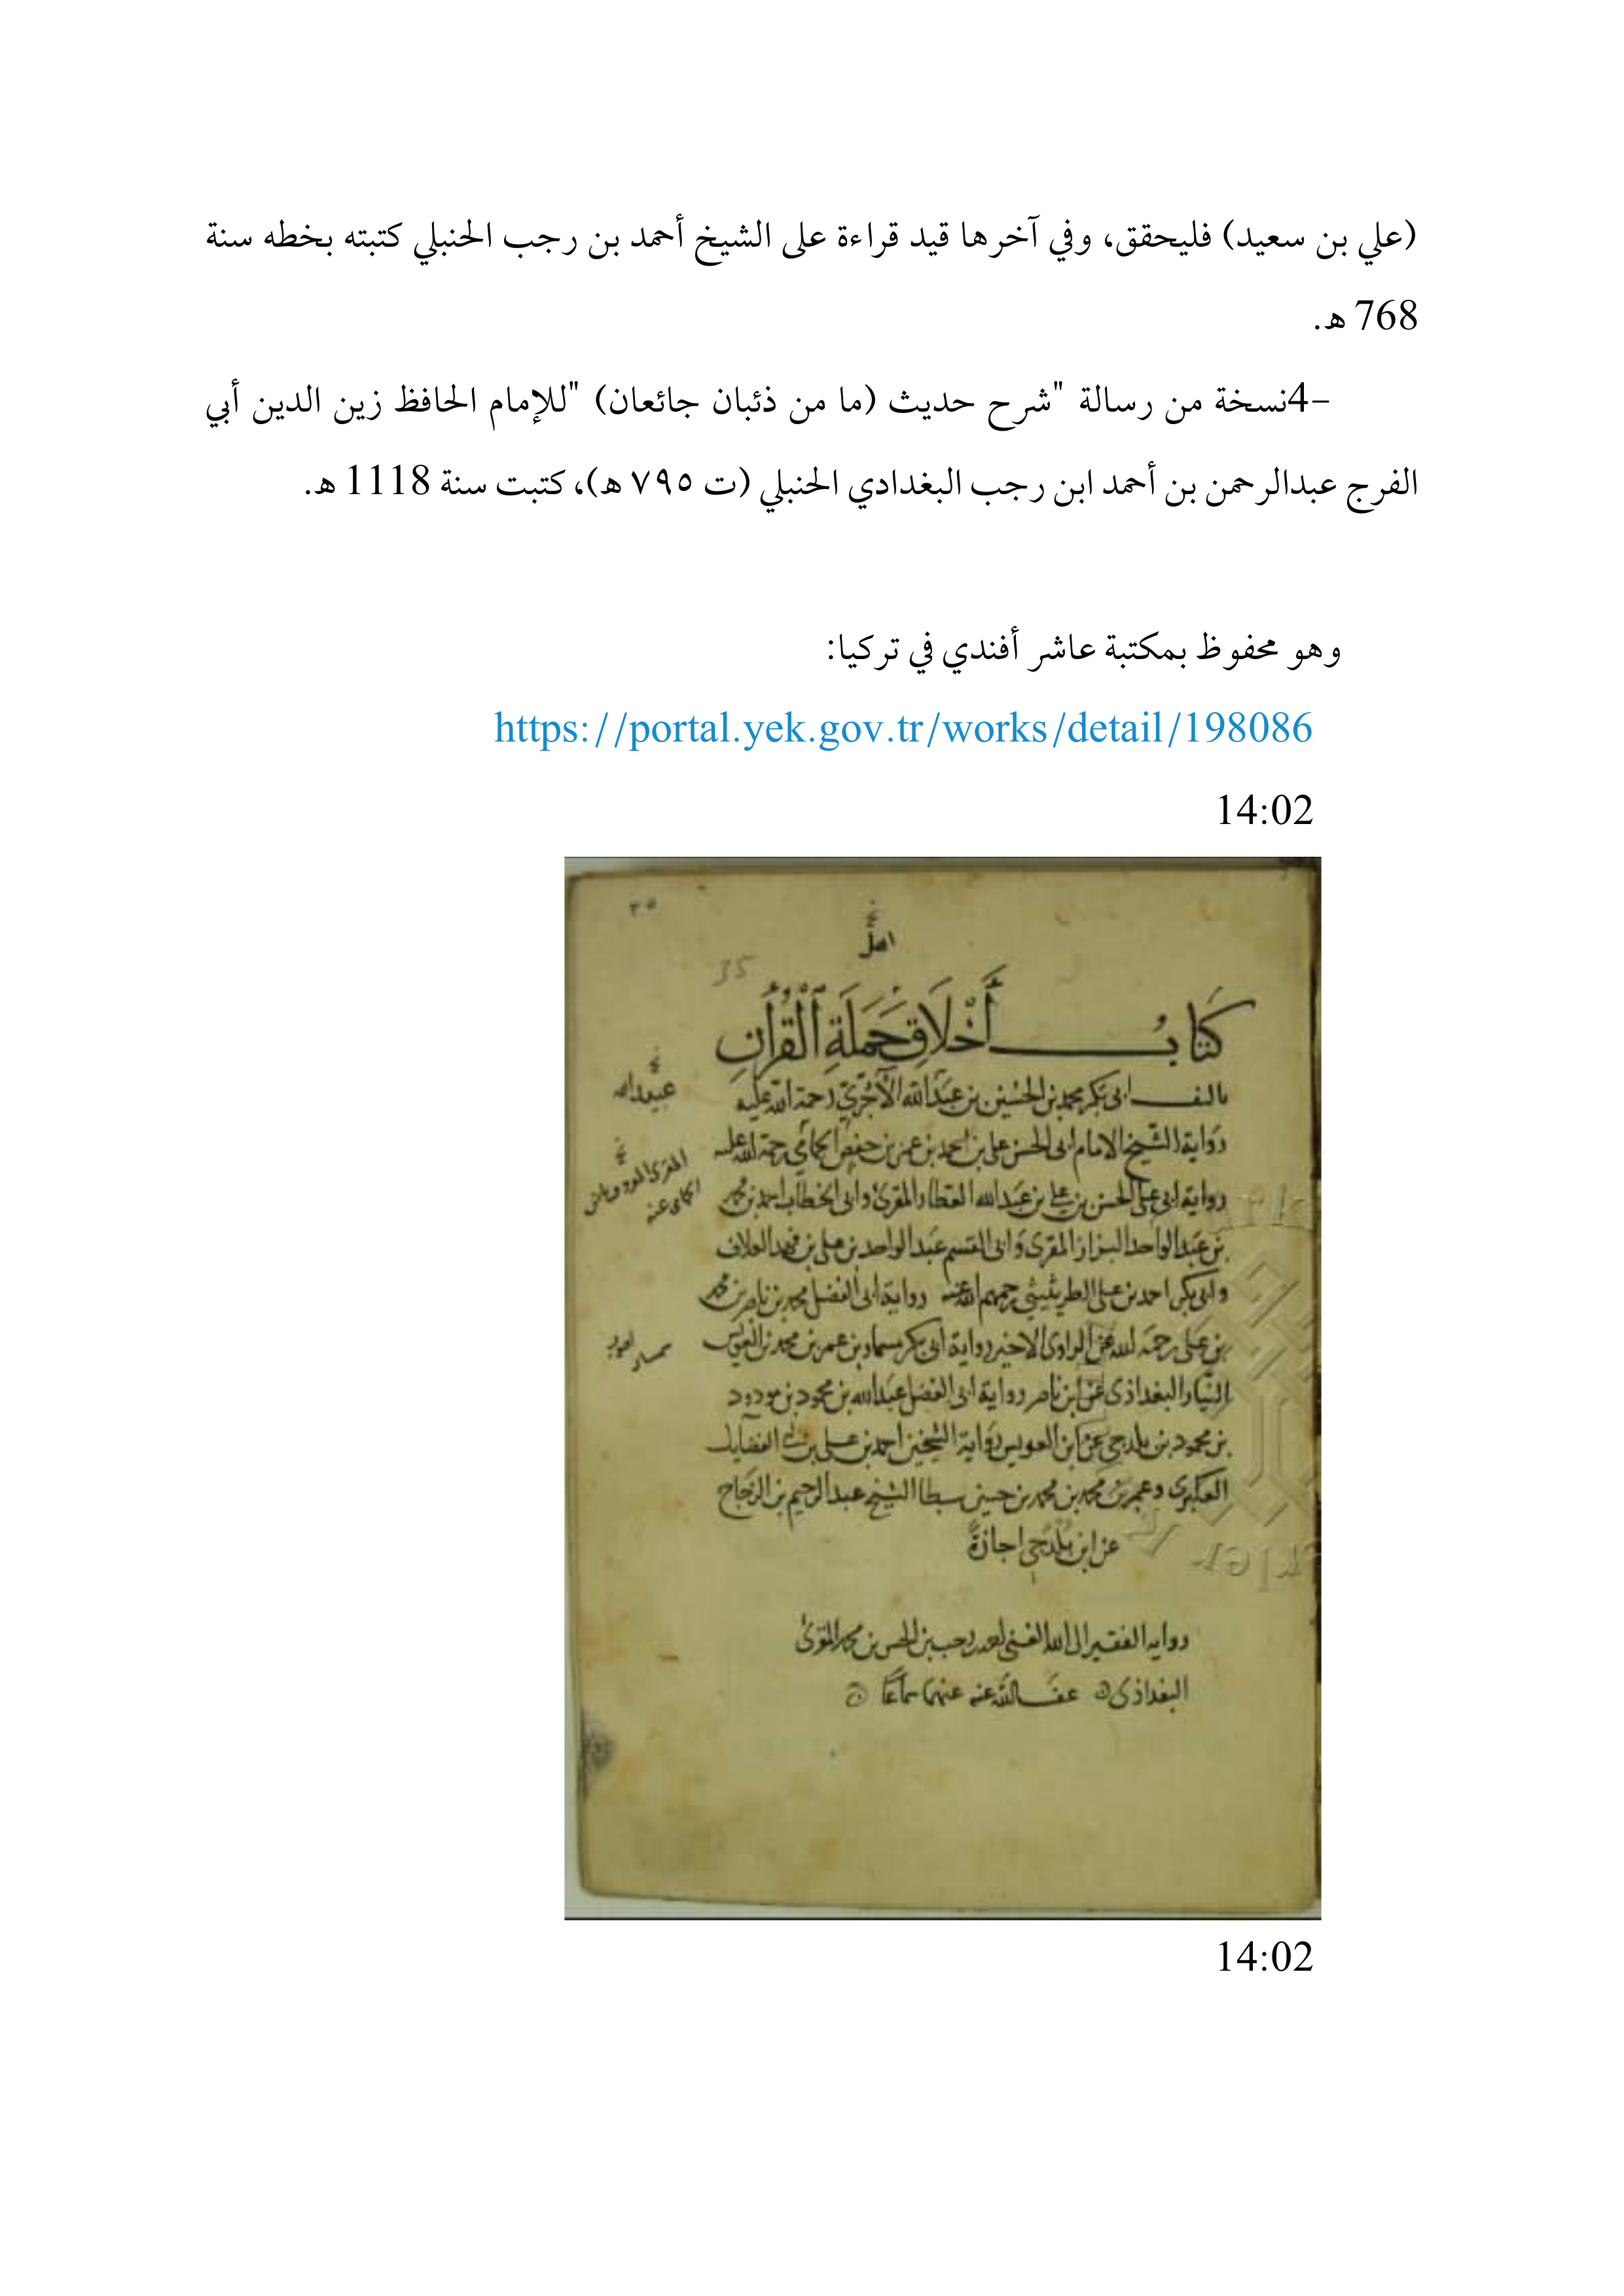 (علي بن سعيد) فليحقق، وفي آخرها قيد قراءة على الشيخ أحمد بن رجب الحنبلي كتبته بخطه سنة
768 ه.
-4نسخة من رسالة "شرح حديث (ما من ذئبان جائعان) "للإمام الحافظ زين الدين أبي
الفرج عبدالرحمن بن أحمد ابن رجب البغدادي الحنبلي (ت ٧٩٥ ه)، كتبت سنة 1118 ه.
وهو محفوظ بمكتبة عاشر أفندي في تركيا:
https://portal.yek.gov.tr/works/detail/198086
14:02
٣٥
اصل
35
كِتَابُ أَخْلَاقِ حَمَلَةِ الْقُرْآنِ
تاليف ابى بكر محمد بن الحسين بن عبد الله الآجُرّيّ رحمة الله عليه
عبدالله
رواية الشيخ الامام ابى الحسن على بن احمد بن عمر بن حفص الحمامي رحمة الله عليه
رواية ابى على الحسن بن على بن عبد الله العطار المقرئ وابى الخطاب احمد بن محمد
بن عبد الواحد البزاز المقرى وابى القسم عبد الواحد بن على بن فهد العلاف
وابى بكر احمد بن على الطريثيثي رحمهم الله عنه رواية ابى الفضل محمد بن ناصر بن محمد
بن على رحمه الله عن الراوى الاخير رواية ابى بكر بن عمر بن محمد بن العويس
النيار البغداذى عن ابن ناصر رواية ابى الفضل عبد الله بن محمود بن مودود
بن محمود بن بلدجي عن ابن العويس رواية الشيخين احمد بن على بن ابى الفضايل
العكبرى وعمر بن محمد بن محمد بن حسين سبطا الشيخ عبد الرحيم بن الزجاج
عن ابن بلدجي اجازة
روايه الفقير الى الله الغنى احمد رجب بن الحسن بن محمد المقرئ
البغداذى عفا الله عنه عنهما سماعا
14:02